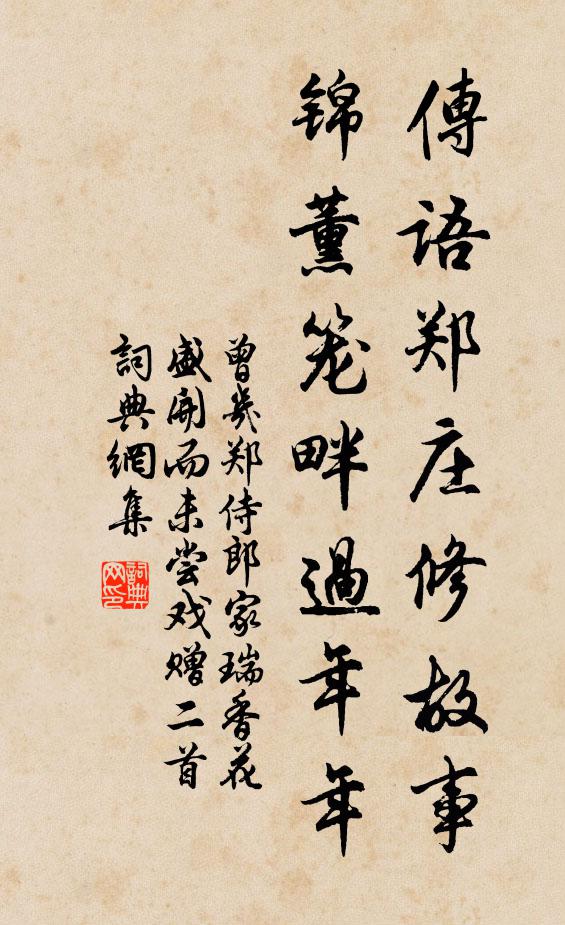 傳语郑庄修故事
锦薰笼畔過年年
曾几郑侍郎家瑞香花
盛開而未尝戏赠二首
詞典網集
詞典网印